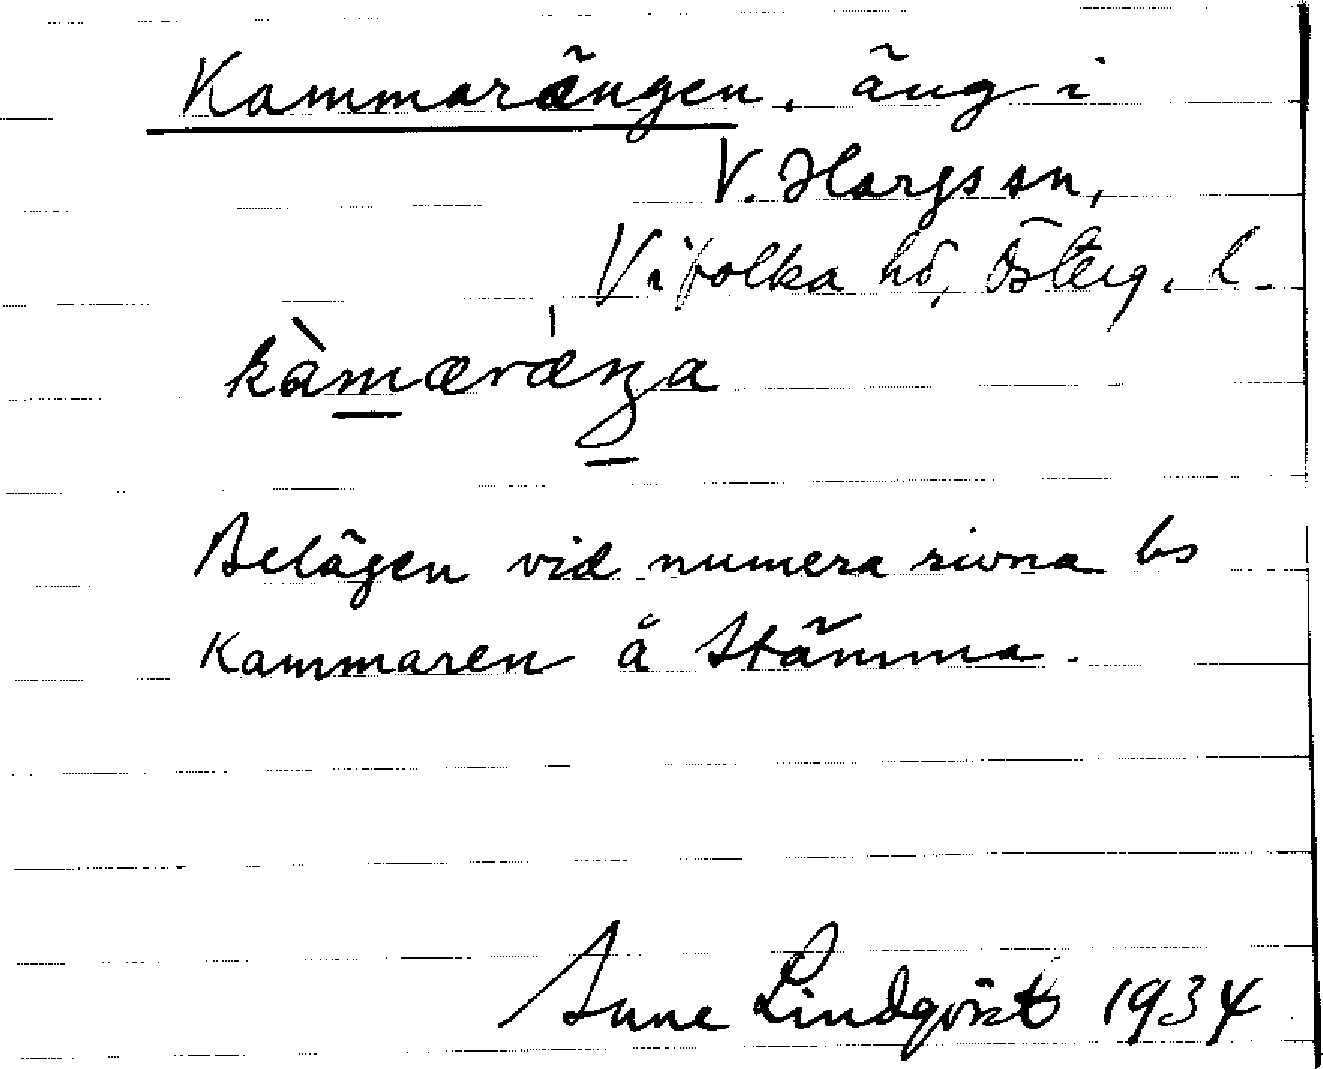 Kammarängen, äng i
V. Hargs sn,
Vifolka hd, Österg. l.
kàmæræŋa
Belägen vid numera rivna bs
Kammaren å Stämma.
Sune Lindqvist 1934